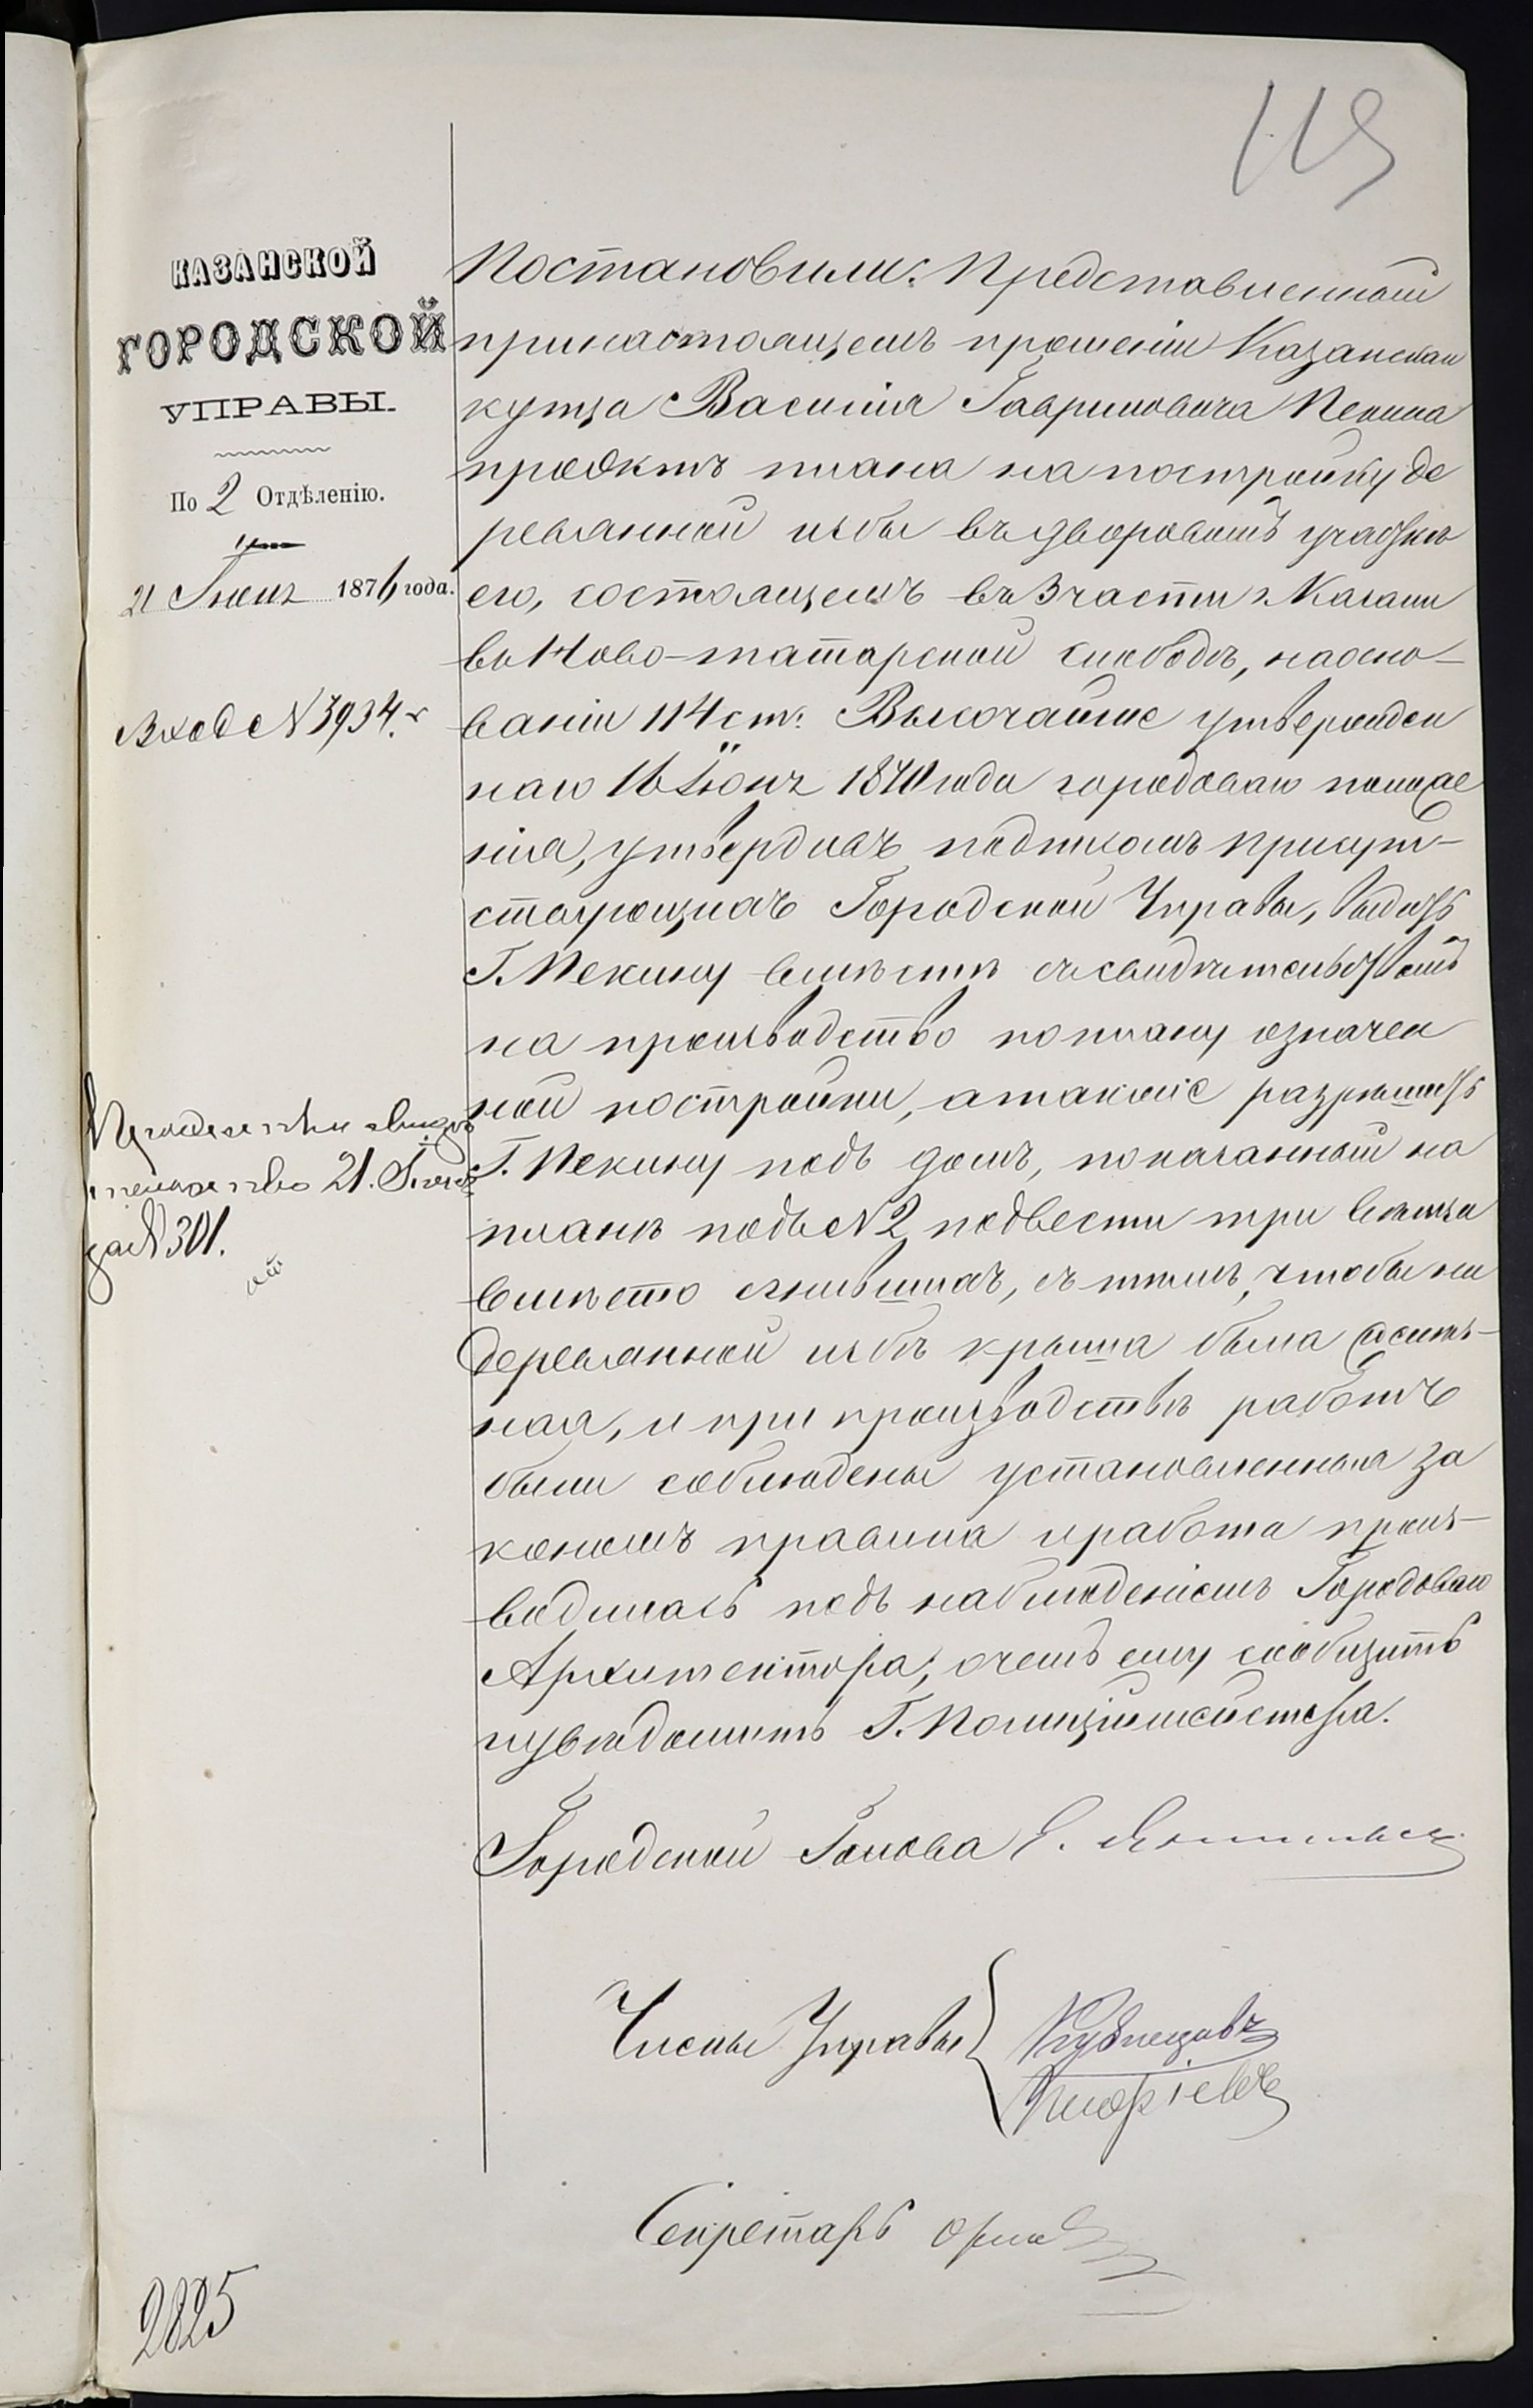 КАЗАНСКОЙ
ГОРОДСКОЙ
УПРАВЫ.
По 2 Отдѣленію.
21 Іюня 1876 года.
Вход №3934.
свидѣ
21. Іюня
за №301.
Постановили: Представленный
принастоящемъ прошеніи Казанскаго
купца Василія Гавриловича Пекина
проэктъ плана на постройку де
ревянной избы въ дворовомъ участкѣ
его, состоящемъ въ 3 части г. Казани
въ Ново-татарской слободѣ, наосно-
ваніи 114 ст: Высочайше утвержден
наго 16 Іюня 1870 года городоваго положе
нія, утвердивъ подписомъ присут-
ствующихъ Городской Управы, выдать
Г. Пекину вмѣстѣ съ свидѣтельствомъ
на производство по плану означен
ной постройки, атакже разрѣшить
Г. Пекину подъ домъ, показанный на
планѣ подъ №2 подвести три вѣнца
вмѣсто сгнившихъ, съ тѣмъ, чтобы на
деревянной избѣ крыша была
ная, и при производствѣ работъ
были соблюдены установленныя за
кономъ правила и работа произ-
водилась подъ наблюденіемъ Городоваго
Архитектора, очемъ ему сообщить
иувѣдомить Г. Полиціймейстера.
Городской Голова
Члены Управы Кузнецовъ
Секретарь
2825